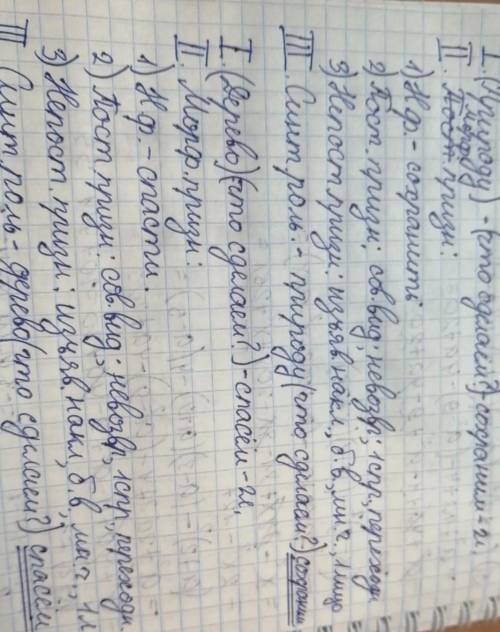 I. (Природу) - (что сделаем?) сохраним - гл,
II. Морф. призн:
1) Н.ф. - сохранить
2) Пост. призн: св. вид; невозвр; 1 спр, переходн
3) Непост. призн: изъяв накл, б. в, мн. ч, 1 лицо
III. Синт роль: - природу (что сделаем?) сохраним.
I. (Дерево) (что сделаем?) - спасём - гл,
II. Морф. призн:
1) Н.ф. - спасти.
2) Пост. призн: св. вид; невозвр, 1 спр, переходн.
3) Непост. призн: изъяв накл, б. в, мн. ч, 1 л
III Синт. роль - дерево (что сделаем?) спасём